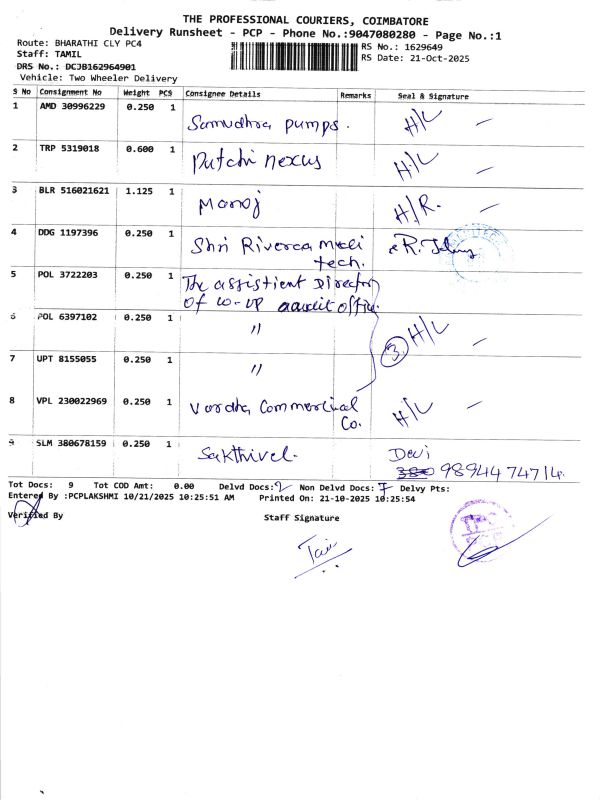 THE PROFESSIONAL COURIERS, COIMBATORE
Delivery Runsheet - PCP - Phone No.:9047080280 - Page No.:1
Route: BHARATHI CLY PC4
RS No.: 1629649
Staff: TAMIL
RS Date: 21-Oct-2025
DRS No.: DCJB162964901
Vehicle: Two Wheeler Delivery
S No Consignment No Weight PCS Consignee Details Remarks Seal & Signature
1 AMD 30996229 0.250 1 Samudhra pumps. H/L —
2 TRP 5319018 0.600 1 Patchi nexus H/L —
3 BLR 516021621 1.125 1 Manoj H/R. —
4 DDG 1197396 0.250 1 Shri Riverca medi
tech.
5 POL 3722203 0.250 1 The assistient Director
of co-op audit office.
6 POL 6397102 0.250 1 " 3 H/L —
7 UPT 8155055 0.250 1 "
8 VPL 230022969 0.250 1 Vardha Commercial H/L —
Co.
9 SLM 380678159 0.250 1 Sakthivel. Devi
9894474714.
Tot Docs: 9 Tot COD Amt: 0.00 Delvd Docs: 2 Non Delvd Docs: 7 Delvy Pts:
Entered By :PCPLAKSHMI 10/21/2025 10:25:51 AM Printed On: 21-10-2025 10:25:54
Verified By
Staff Signature